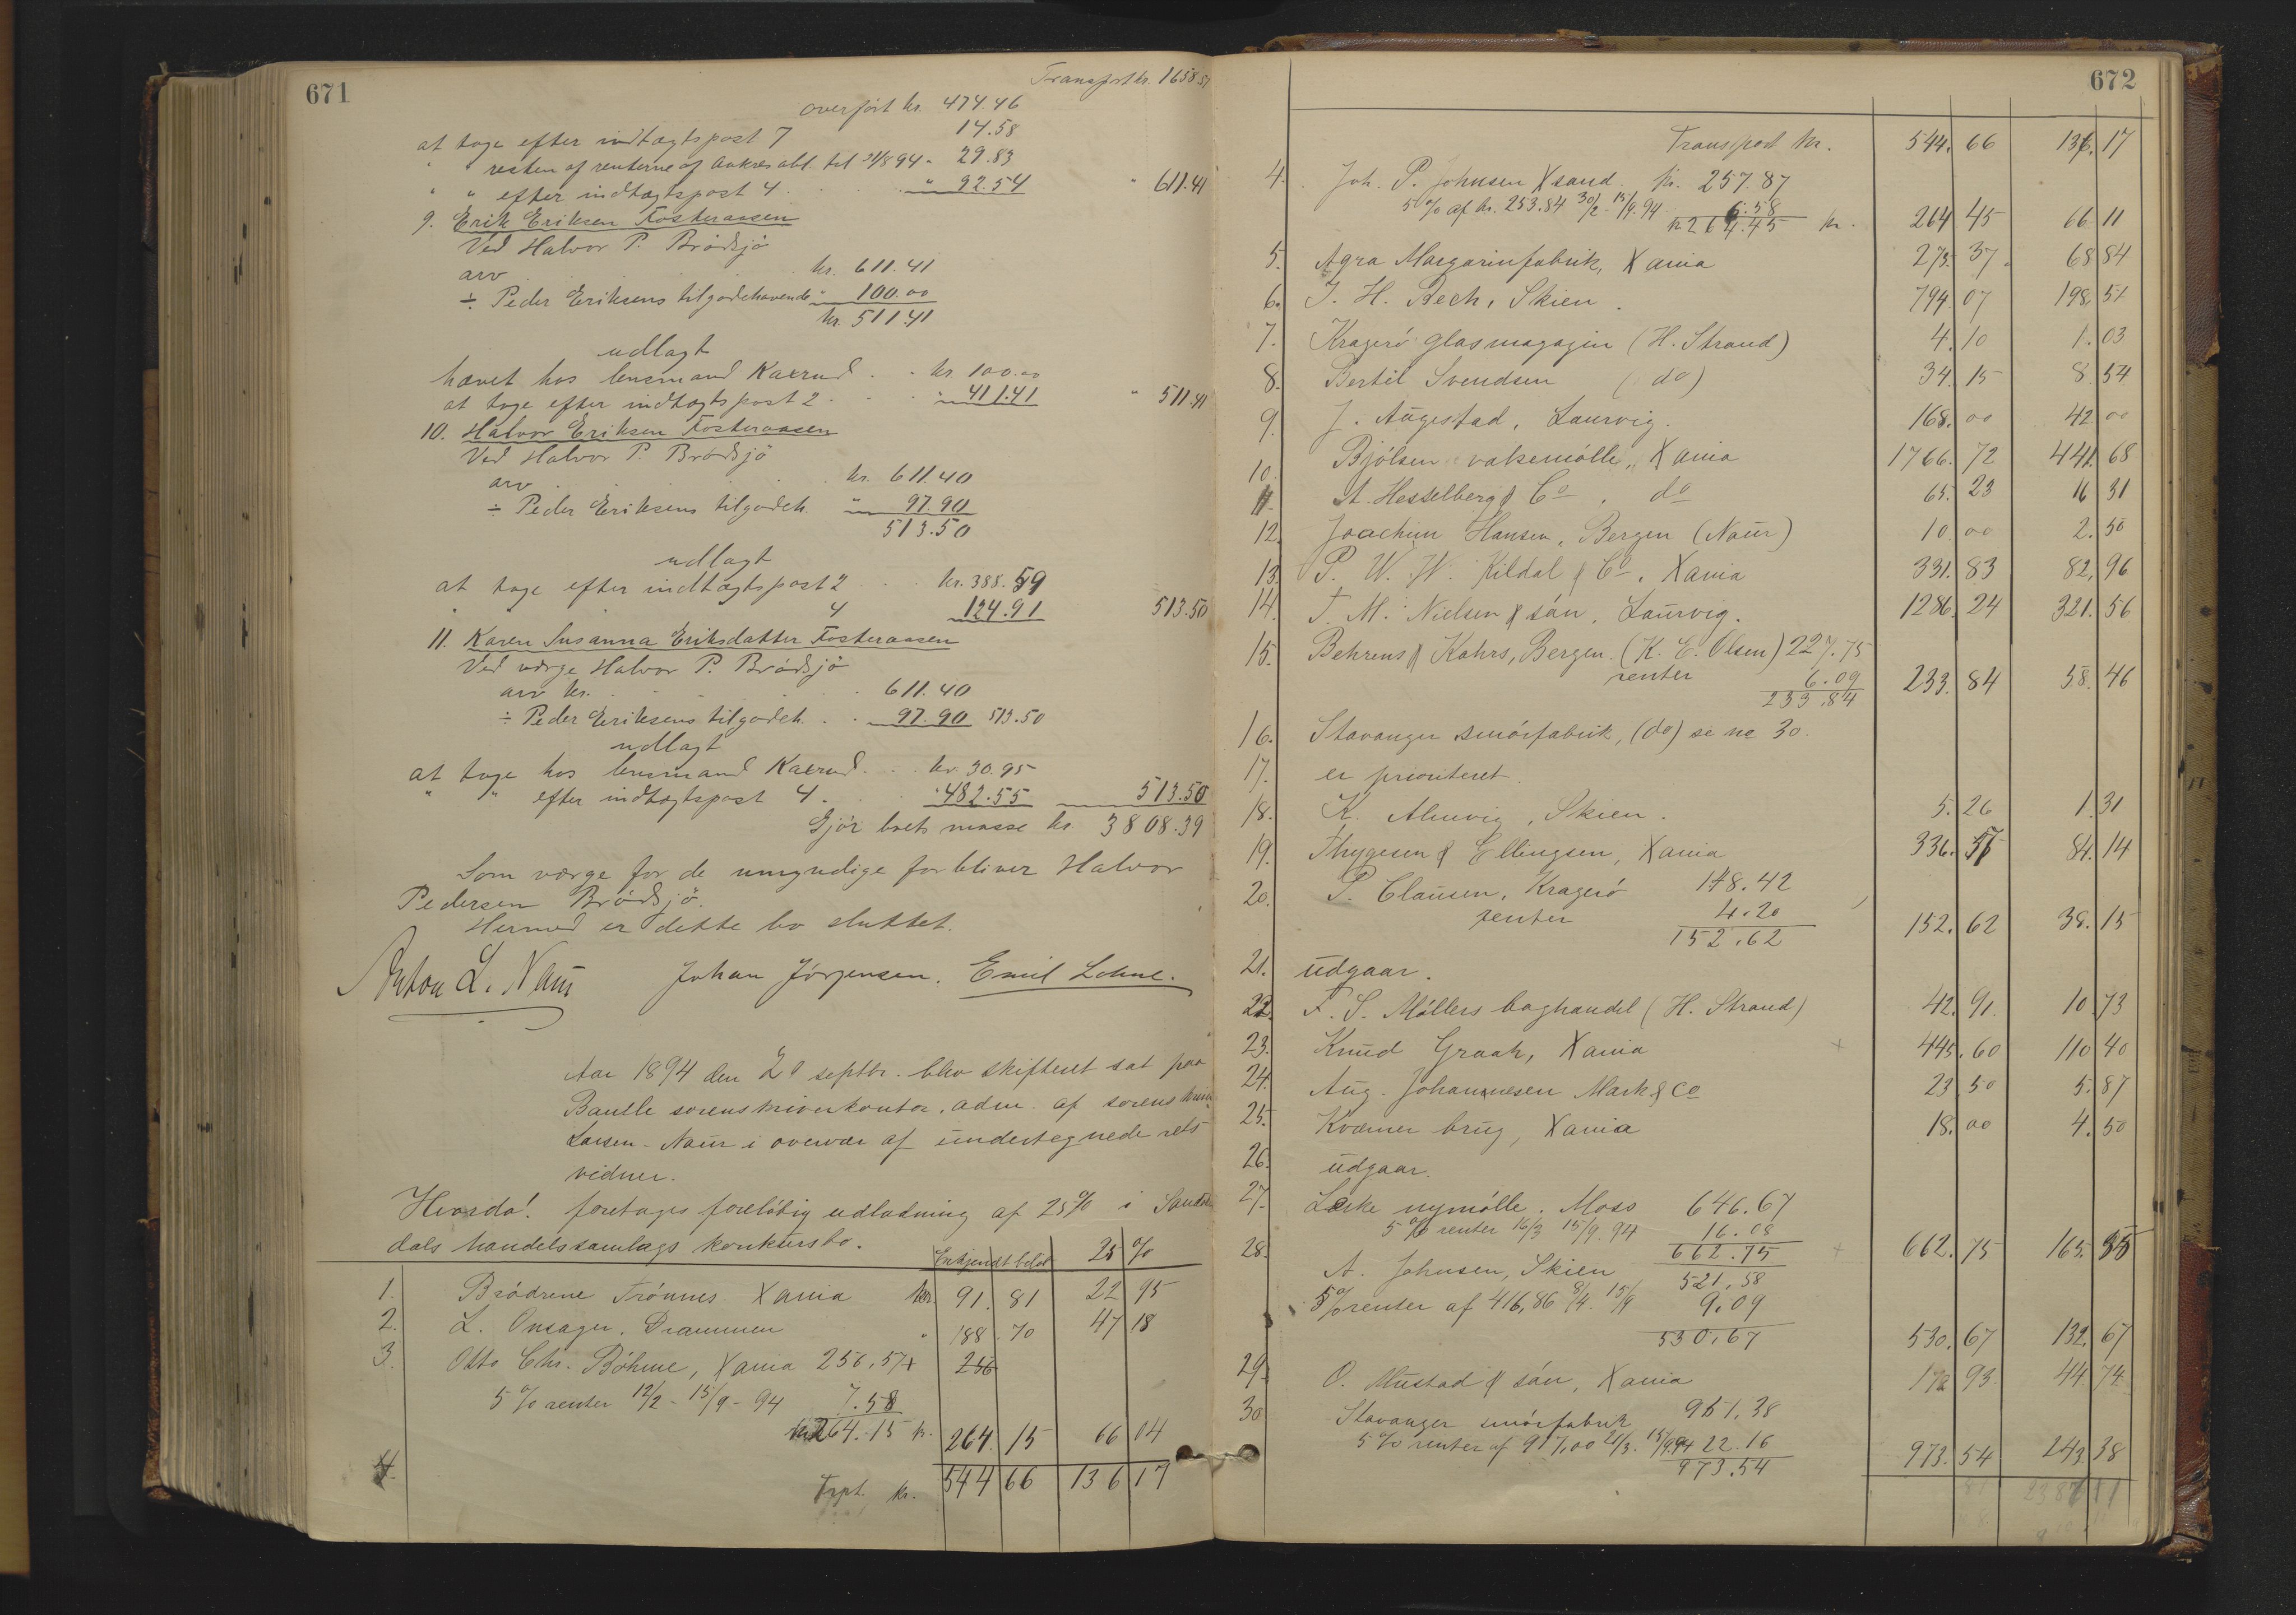 671
Transport kr. 1658 57
overført kr. 474.46
at tage efter indtægtspost 7 14.58
" " resten af renterne af ankres obl. til 31/8 94 " 29.83
" " efter indtægtspost 4 . . . " 92.54 " 611.41
9. Erik Eriksen Fosteraasen
Ved Halvor P. Brødsjø
arv . . . kr. 611.41
÷ Peder Eriksens tilgodehavende " 100.00
kr. 511.41
udlagt
hævet hos lensmand Kaxrud . . kr 100.00
at tage efter indtægtspost 2 . . . " 411.41 " 511.41
10. Halvor Eriksen Fosteraasen
Ved Halvor P. Brødsjø
arv . . . kr. 611.40
÷ Peder Eriksens tilgodeh. " 97.90
513.50
udlagt
at tage efter indtægtspost 2 . . kr. 388.59
" " " 4 124.91 513.50
11. Karen Susanna Eriksdatter Fosteraasen
Ved værge Halvor P. Brødsjø
arv kr. . . . 611.40
÷ Peder Eriksens tilgodeh. . . 97.90 513.50
udlagt
at tage hos lensmand Kaxrud . . kr. 30.95
" " efter indtægtspost 4 . " 482.55 513.50
Gjør boets masse kr. 3808.39
Som værge for de umyndige forbliver Halvor
Pedersen Brødsjø.
Hermed er dette bo sluttet.
Anton L. Naur Johan Jørgensen. Emil Lohne.
Aar 1894 den 20 septbr. blev skifteret sat paa
Bamble sorenskriverkontor, adm. af sorenskriver
Larsen-Naur i overvær af undertegnede rets
vidner.
Hvorda! foretages foreløbig udlodning af 25% i Sande
dals handelssamlags konkursbo.
Erkjendt beløb 25 %
1. Brødrene Trønnes Xania kr. 91. 81 22 95
2. L. Onsager. Drammen " 188. 70 47 18
3. Otto Chr. Bøhme, Xania 256.57 256
5 % renter 12/2 - 15/9 - 94 7.58
kr 264.15 kr. 264. 15 66 04
4
Trpt. kr. 544 66 136 17
672
Transport kr. 544. 66 136. 17
4. Joh. P. Johnsen Xsand. kr. 257.87
5 % af kr. 253.84 30/2 - 15/9. 94 6.58
kr 264.45 kr. 264 45 66 11
5. Agra Margarinfabrik, Xania 273. 37 68 84
6. J. H. Bech, Skien . 794. 07 198. 51
7. Kragerø glasmagazin (H. Strand) 4. 10 1. 03
8. Bertil Svendsen (do) 34. 15 8. 54
9. J. Augestad, Laurvig. 168. 00 42. 00
10. Bjølsen valsemølle, Xania 1766. 72 441. 68
11. A. Hesselberg & Co. do 65. 23 16 31
12. Joachim Hansen, Bergen (Naur) 10 00 2. 50
13. P. W. W. Kildal & Co, Xania 331. 83 82. 96
14. F. M. Nielsen & søn, Laurvig. 1286. 24 321. 56
15. Behrens & Kahrs, Bergen. (K. E. Olsen) 227.75
renter 6.09
233.84 233. 84 58. 46
16. Stavanger smørfabrik, (do) se no 30.
17. er prioriteret.
18. K. Almvig, Skien. 5. 26 1. 31
19. Thygesen & Ellingsen, Xania 336. 57 84. 14
20. P. Clausen, Kragerø 148.42
renter 4.20
152.62 152. 62 38. 15
21. udgaar.
22. F. S. Møllers boghandel (H. Strand) 42. 91. 10. 73
23. Knud Graah, Xania 445. 60 110 40
24. Aug. Johannesen Mark & co 23. 50 5. 87
25. Kværner brug, Xania 18. 00 4. 50
26. udgaar.
27. Leske nymølle. Moss 646.67
5 % renter 16/3 15/9. 94 16.08
662.75 662. 75 165. 35
28. A. Johnsen, Skien 521.58
5 % renter af 416,86 8/4. 15/9 9.09
530.67 530. 67 132. 67
29. O. Mustad & søn, Xania 178 93 44. 74
30. Stavanger smørfabrik 951.38
5 % renter af 917,00 21/3. 15/9 94 22.16
973.54 973. 54 243. 38